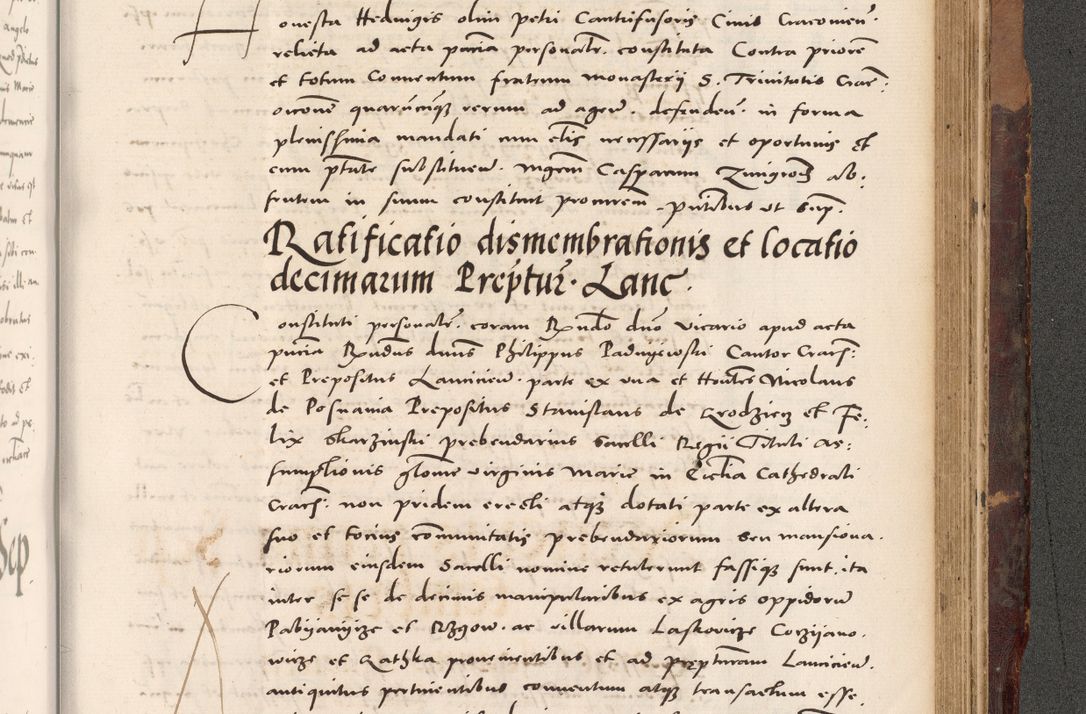 Honesta Hedvigis olim petri Cantrifusoris Civis Cracovien̄.
relicta ad acta pn̄tia personalr̄. constituta Contra priorē
et totum Conventum fratrum monasterij S. Trinitatis Crac̄:
occōne quarūcūqꝫ rerum ad agen̄. defenden̄. in forma
plenissima mandati cum ctīs necessarijs et oportunis et
cum ptāte substituen̄. mgrm̄ Casparum ab:
sentem in suum constituit procurem̄. pn̄tibus ut sup̄.
Ratificatio dismembrationis et locatio
decimarum Prep̄tur̄. Lanc̄.
Constituti personalr̄. coram Rn̄do dn̄o vicario apud acta
pn̄tia Rn̄dus dn̄us Philippus Padnyewski Cantor Crac̄:
et Prepositus Lancicien̄. parte ex una et Honōles Nicolaus
de Posnania Prepositus Stanislaus de Grodziecz et Fe:
lix Skarzinski prebendarius Sacelli Regij Tituli As:
sumptionis glōse virginis Marie in Ecclīa Cathedrali
Crac̄. non pridem erecti atqꝫ dotati parte ex altera
suo et totius cōmunitatis prebendariorum seu mansiona.
riorum eiusdem Sacelli nomine retulerunt fassiqꝫ sunt, ita
inter se se de decimis manipularibus ex agris oppidorū
Pabijanijcze et Rzgow. ac villarum Laskovicze Corzijano.
wicze et Gathka provenientibus et ad prepturam Lancicien̄.
antiquitus pertinentibus conventum atqꝫ transactum esse.